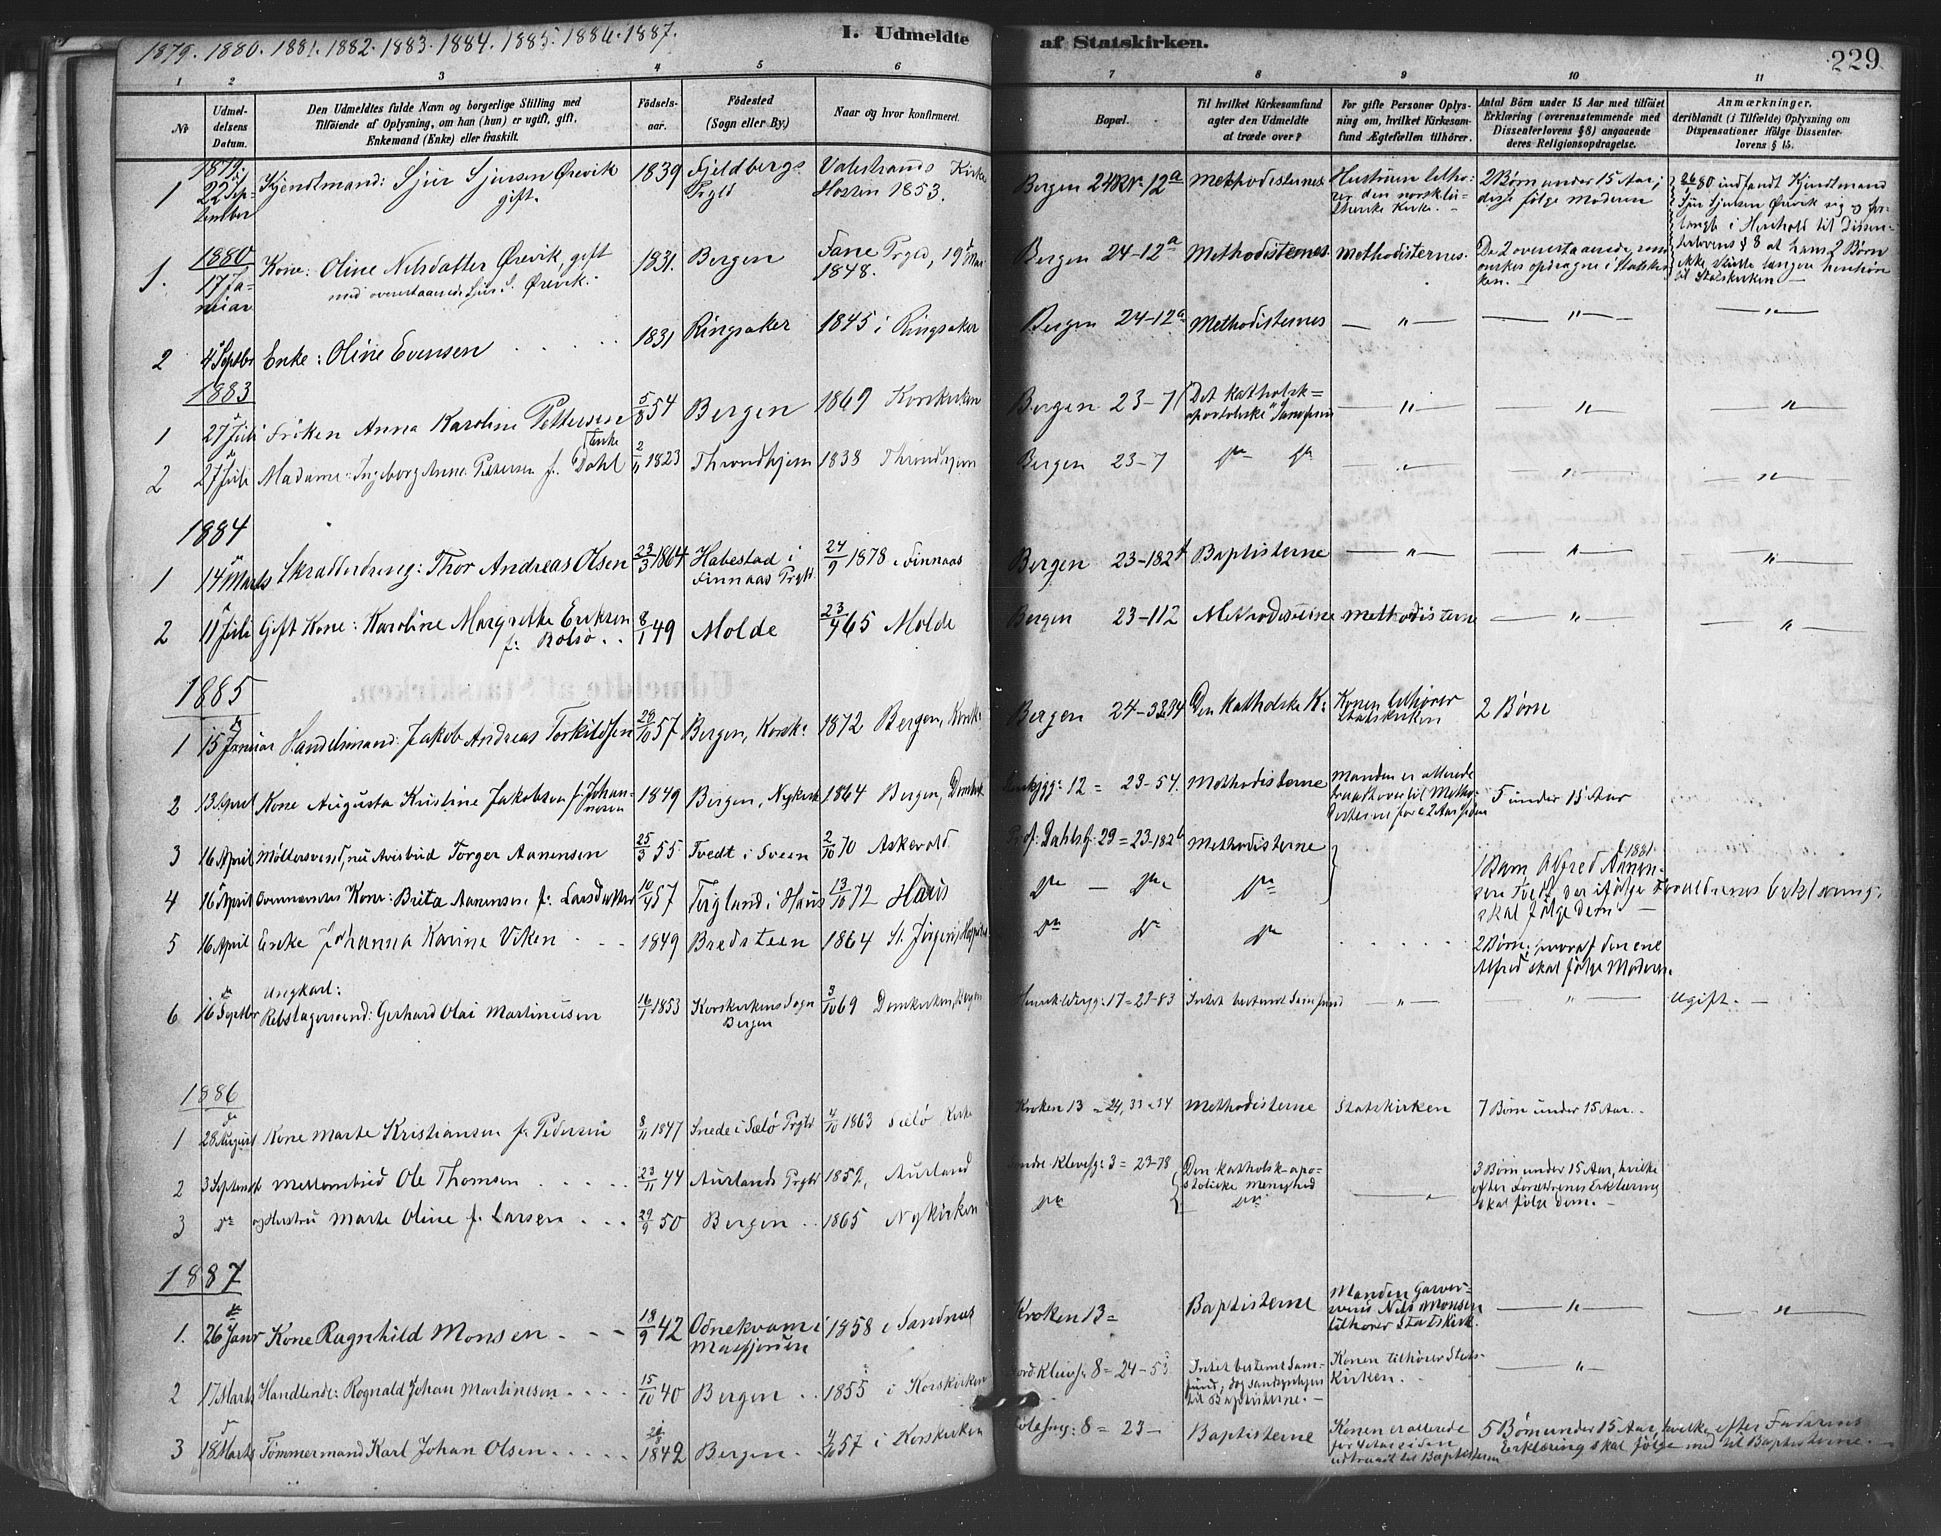 1879. 1880. 1881. 1882. 1883. 1884. 1885. 1886. 1887.
I. Udmeldte af Statskirken.
229
1 2 3 4 5 6 7 8 9 10 11
No
Udmel-
delsens
Datum.
Den Udmeldtes fulde Navn og borgerlige Stilling med
Tilföiende af Oplysning, om han (hun) er ugift, gift,
Enkemand (Enke) eller fraskilt.
Födsels-
aar.
Födested
(Sogn eller By.)
Naar og hvor konfirmeret.
Bopæl.
Til hvilket Kirkesamfund
agter den Udmeldte
at træde over?
For gifte Personer Oplys-
ning om, hvilket Kirkesam-
fund Ægtefællen tilhörer.
Antal Börn under 15 Aar med tilföiet
Erklæring (overensstemmende med
Dissenterlovens § 8) angaaende
deres Religionsopdragelse.
Anmærkninger,
deriblandt (i Tilfælde) Oplysning om
Dispensationer ifölge Dissenter-
lovens § 15.
1879.
1 22 Sep-
tember
Kjendtmand: Sjur Sjursen Ørevik
gift.
1839
Fjeldbergs
Prgld
Valestrands Kirke
Hosten 1853.
Bergen 24 Kr. 12a
Methodisternes
Hustruen tilhö-
rer den norsk lu-
therske Kirke.
2 Børn under 15 Aar;
disse følge Moderen
80 indfandt Kjendtmand
Sjur Sjursen Ørevik sig og for-
langte i Henhold til Dissen-
terlovens § 8 at hans 2 Børn
ikke skulde længere henhøre
til Statskirken.
1880
1. 17 Ja-
nuar
Kone: Oline Nilsdatter Ørevik, gift
med ovenstaaende Sjur S. Ørevik.
1831.
Bergen
Fane Prgld, 19 Mai
1848.
Bergen 24-12a
Methodisternes
Methodisternes.
De 2 ovenstaaende, som
ønskes opdragne i Statskir-
ken.
2 4 Septbr Enke: Oline Evensen 1831 Ringsaker 1845 i Ringsaker
Bergen 24-12a Methodisternes — " — — " — — " —
1883
1 27 Juli Frøken Anna Karoline Pettersen 5/8 54 Bergen 1869 Korskirken
Bergen 23-7 Det katholsk=
apostoliske Samfund — " — — " — — " —
2 27 Juli Madame: Ingeborg Anna Petersen f. Dahl Enke 1823 Throndhjem 1838 Throndhjem
Bergen 23-7 — " — — " — — " —
1884
1 14 Marts Skrædderdreng: Thor Andreas Olsen 23/3 1864 Habestad i
Finnaas Prgld 24/9 1878 i Finnaas
Bergen 23-182f Baptisterne — " — — " — — " —
2 11 Juli Gift Kone: Karoline Margrethe Eriksen
f: Rolsø 8/1 49 Molde 23/9 65 Molde
Bergen 23-112 Methodisterne Methodisterne — " — — " —
1885
1 15 Januar Handelsmand: Jakob Andreas Torkildsen 29/10 57 Bergen, Korsk: 1872 Bergen, Korsk:
Bergen Den katholske K: Konen tilhører
Statskirken 2 Børn
2 13 April Kone Augusta Kristine Jakobsen f. Johan-
nesen 1849 Bergen, Nykirk 1864 Bergen, Domkirk
12 = 23-54. Methodisterne Manden er allerede
traadt over til Metho-
disterne for 2 Aar siden 5 under 15 Aar
3 16 April Møllersvend, nu Avisbud Torger Aanensen 25/3 55 Tvedt i Sveen 2/10 70 Askevold
Prof: Dahlsg: 29 = 23-182b Methodisterne
4 16 April Ovennævntes Kone: Brita Aanensen f: Larsdatter 10/4 57 Tegland i Haus 13/10 72 Haus
1 Barn Alfred Aanen-
sen Tvedt, der ifølge Forældrenes Erklæring,
skal følge dem —
5 16 April Enke Johanna Karine Viken 1849 Bredsteen 1864 St. Jørgens Hospital
2 Børn; hvoraf den ene
Alfred skal følge Moderen
6 16 Septbr Ungkarl:
Rebslagersvend: Gerhard Olai Martinusen 16/1 1853 Korskirkens Sogn
Bergen 3/10 69 Domkirken, Bergen
17 = 22-83 Intet bestemt Samfund — " — — " — Ugift. —
1886
1 28 August Kone Marte Kristiansen f. Pedersen 8/11 1847 Snede i Sælø Prgld 4/10 1863 Sælø Kirke
Kroken 13 = 24, 33=34 Methodisterne Statskirken 7 Børn under 15 Aar.
2 3 September Mellembud Ole Thomsen 23/11 44 Aurlands Prgld 1859, Aurland
Søndre Klevesg: 3 = 23-78 Den katholsk-apo-
stoliske menighed
3 Børn under 15 Aar, hvilke
efter Forældrenes Erklæring
skal følge dem. —
3 og Hustru Marte Oline f. Larsen 29/9 50 Bergen 1865 Nykirken
1887
1. 26 Janr Kone Ragnhild Monsen 18/9 42 Odnekvam i
Masfjorden 1858 i Sandnæs
Kroken 13 = Baptisterne Manden Garver-
svend Nils Monsen
tilhører Statskirk. — " — — " —
2 17 Marts Handlende: Rognald Johan Martinesen 15/10 40 Bergen 1855 i Korskirken
8 = 24-53 Intet bestemt Sam-
fund, dog
til Baptisterne. — Konen tilhører Stats-
kirken. — " —
3 18 Marts Tømmermand Karl Johan Olsen 1842 Bergen 4/10 57 i Korskirken
8 = 23 — Baptisterne Konen er allerede
for siden
udtraadt til Baptisterne
5 Børn under 15 Aar, hvilke efter Faderens
Erklæring skal følge med til Baptisterne